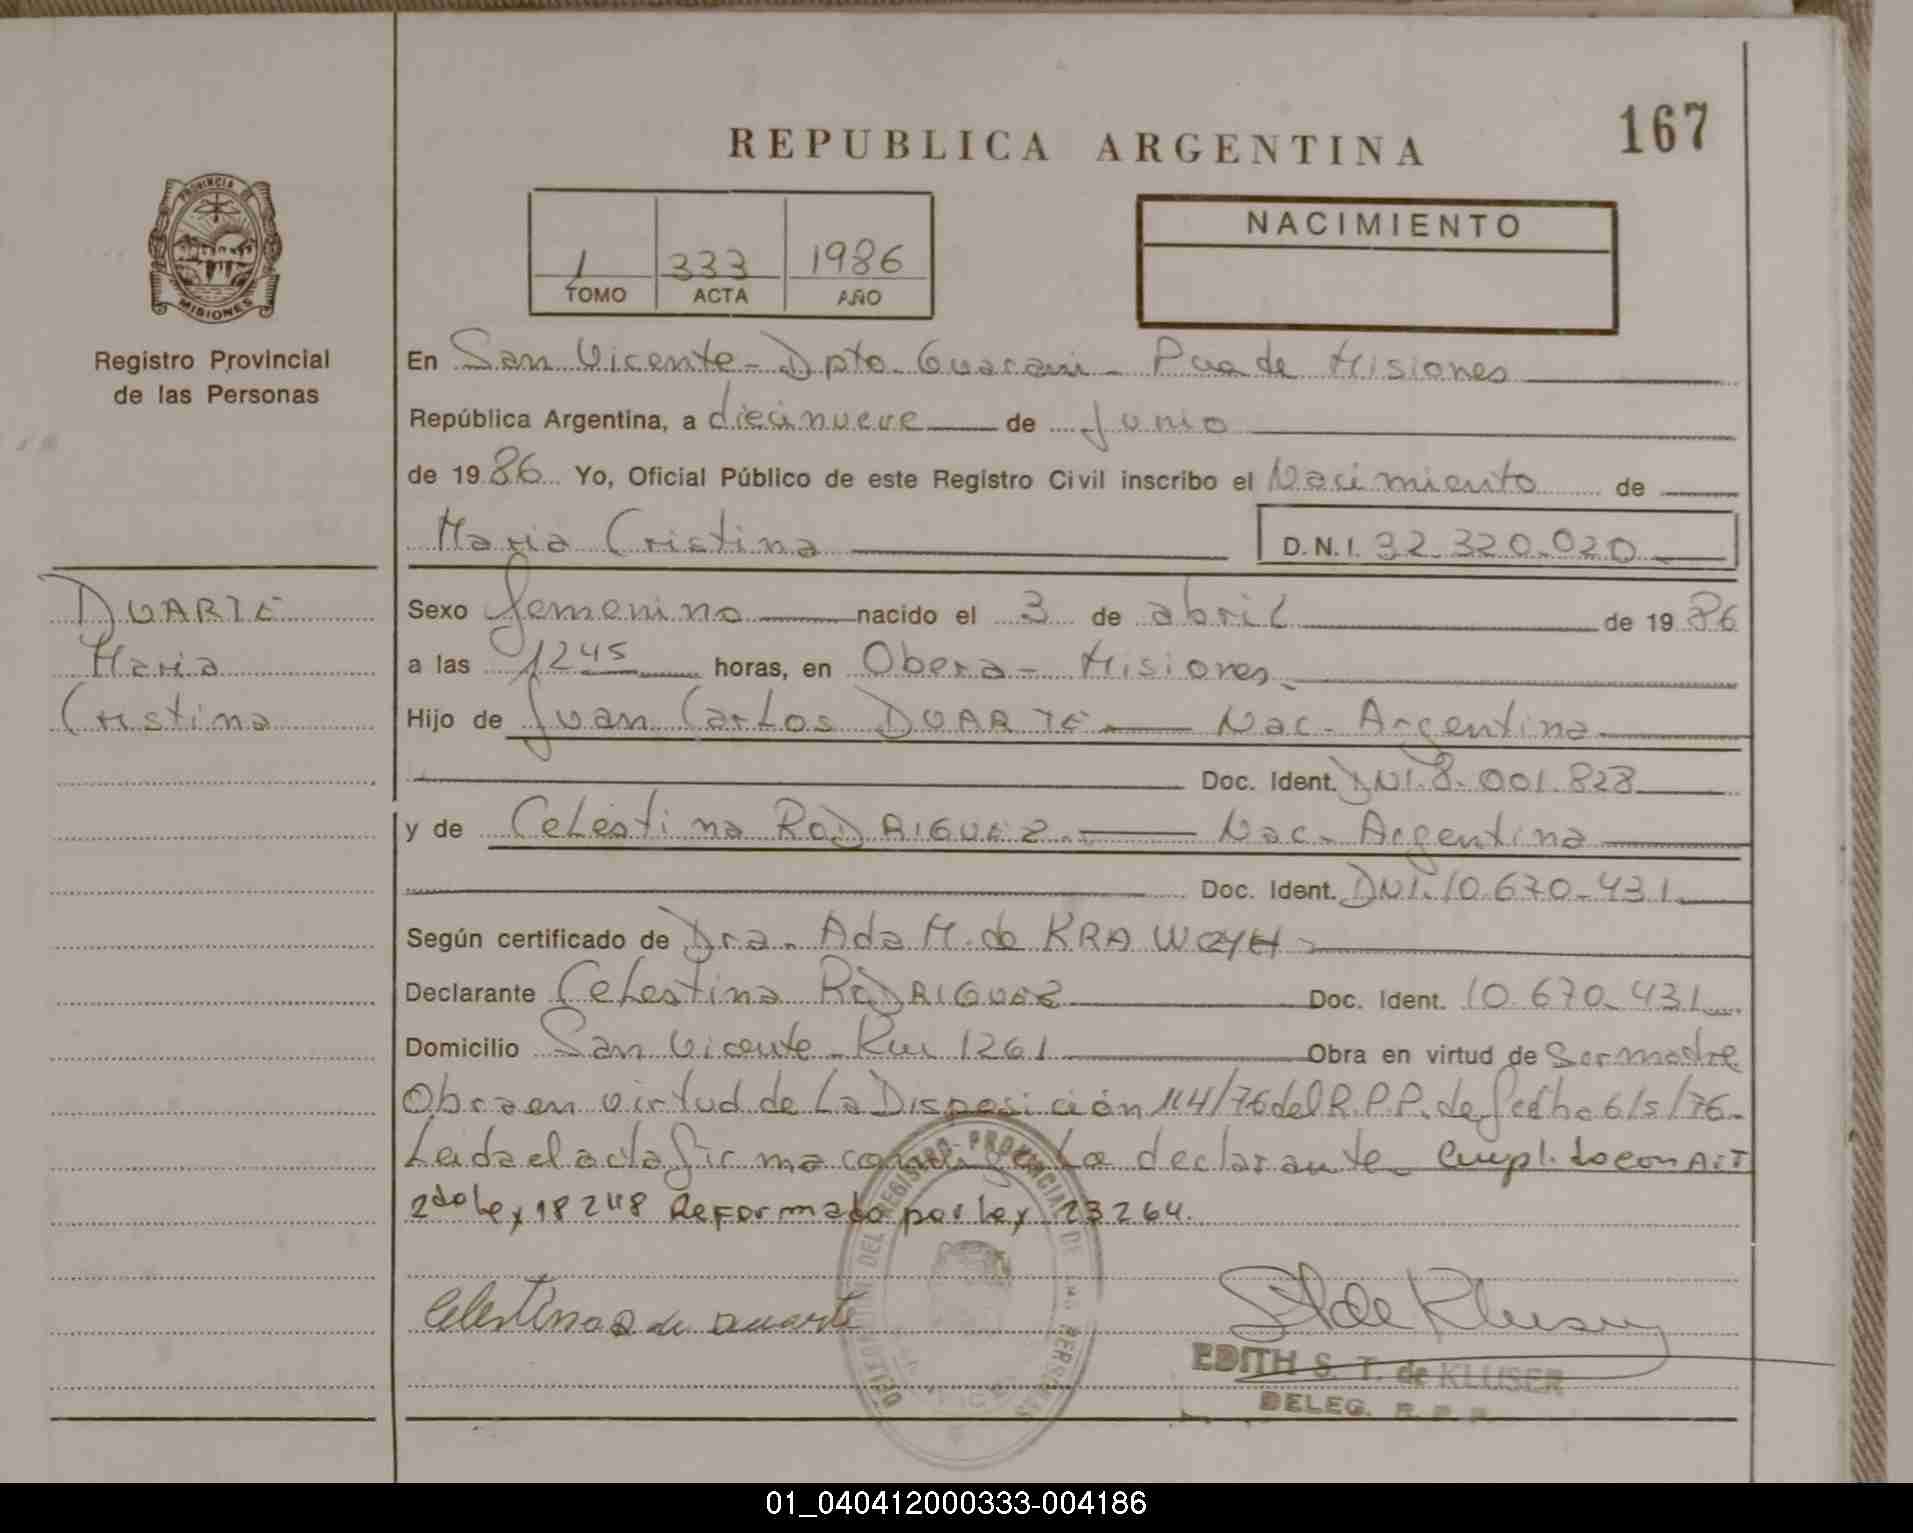 167
REPUBLICA ARGENTINA
PROVINCIA DE
MISIONES
Registro Provincial
de las Personas
1 333 1986
TOMO ACTA AÑO
NACIMIENTO
En San Vicente - Dpto. Guarani - Pcia de Misiones
República Argentina, a diecinueve de Junio
de 1986 Yo, Oficial Público de este Registro Civil inscribo el Nacimiento de
Maria Cristina D.N.I. 32.320.020
DUARTE
Maria
Cristina
Sexo femenino nacido el 3 de abril de 1986
a las 12 45 horas, en Obera - Misiones.
Hijo de Juan Carlos DUARTE Nac. Argentina
Doc. Ident. DNI. 8.001.828
y de Celestina RODRIGUEZ. Nac. Argentina
Doc. Ident. DNI. 10.670.431
Según certificado de Dra. Ada M. de
Declarante Celestina RODRIGUEZ Doc. Ident. 10.670.431
Domicilio San Vicente - Km 1261 Obra en virtud de Ser madre
Obra en virtud de La Disposición 114/76 del R.P.P. de fecha 6/5/76.
Leida el acta firma conmigo La declarante. Cumplido con ART
2do Ley 18248 Reformado por ley 23264.
DELEGACION DEL REGISTRO PROVINCIAL DE LAS PERSONAS
Celestina R de Duarte
EDITH S. T. de KLUSER
DELEG. R. P. P.
01_040412000333-004186